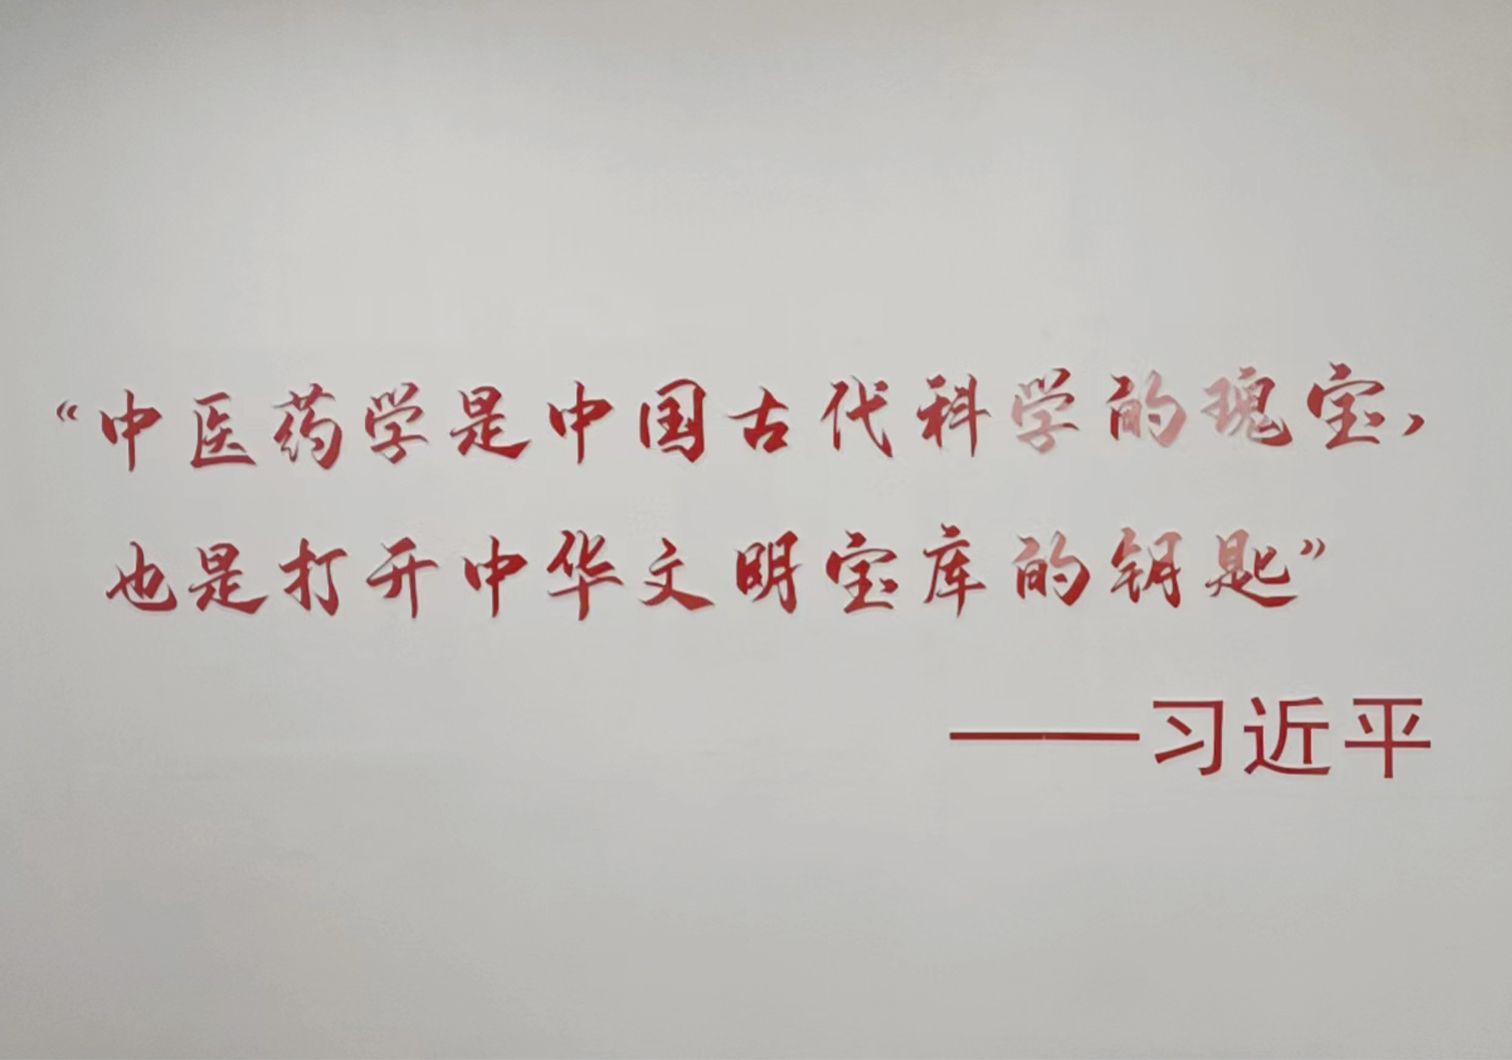 “中医药学是中国古代科学的瑰宝，
也是打开中华文明宝库的钥匙”
——习近平